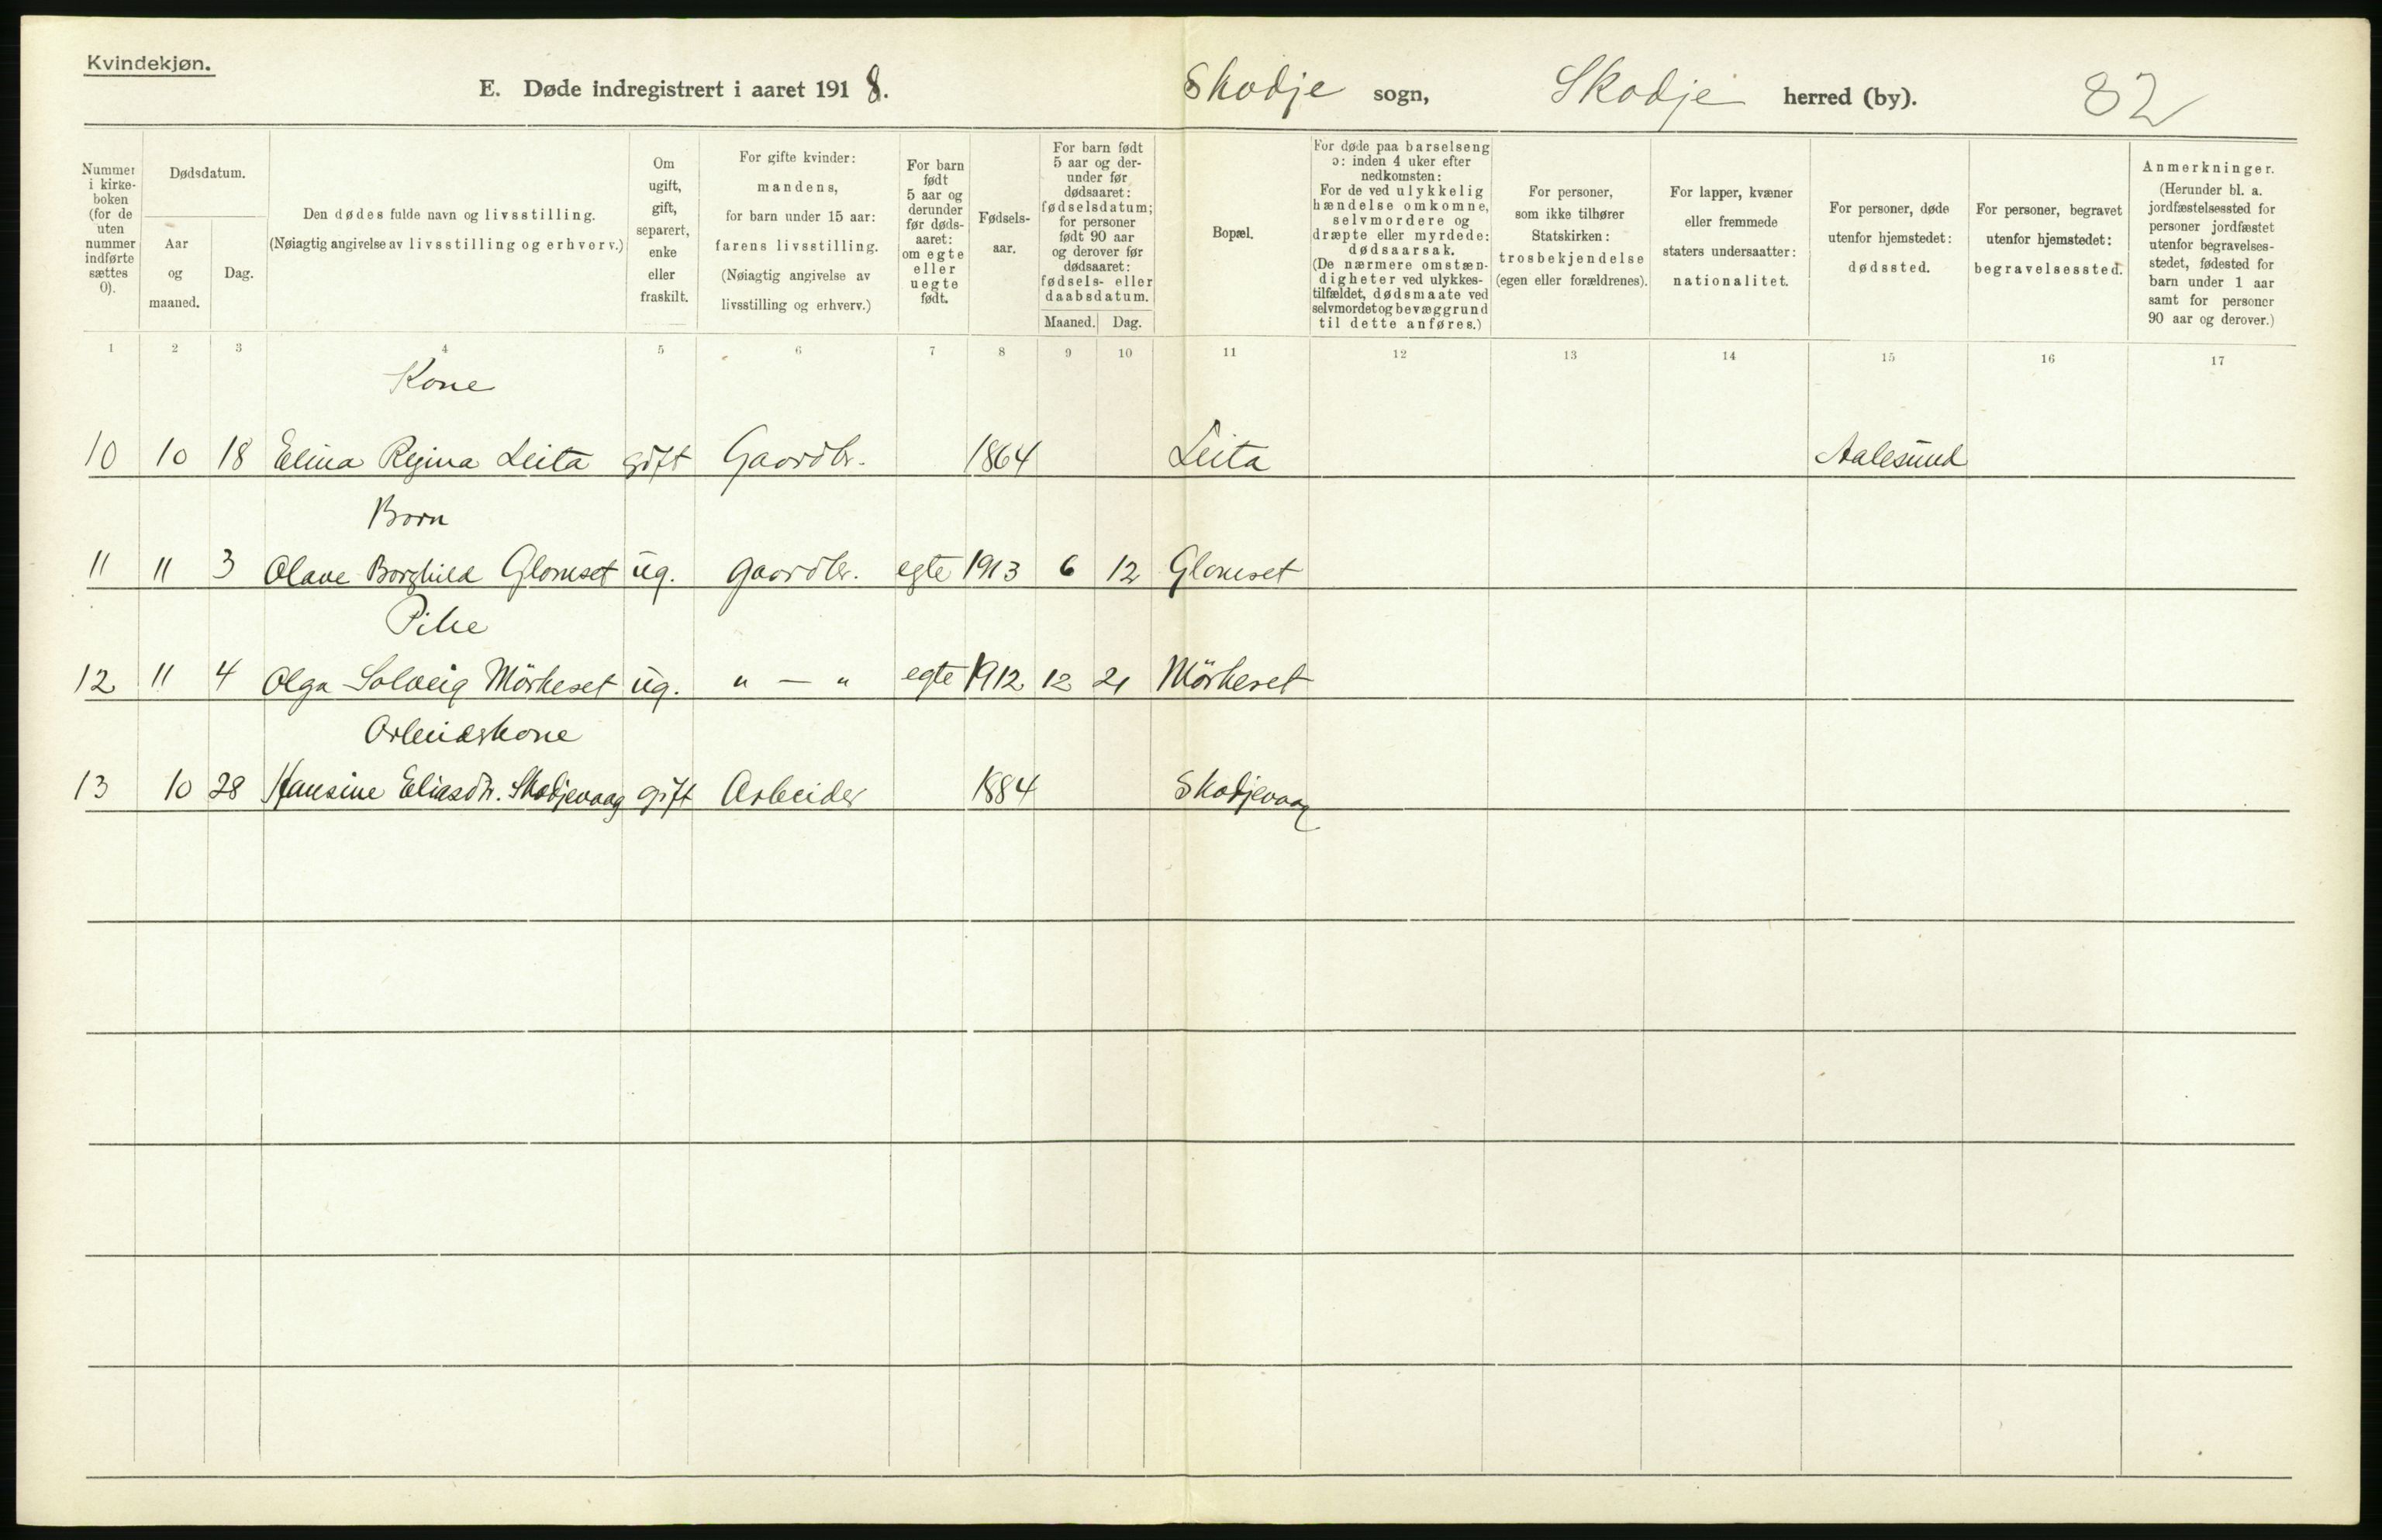 Kvindekjøn.
E. Døde indregistrert i aaret 1918.
Skodje sogn, Skodje herred (by). 82
Nummer i kirke-boken (for de uten nummer indførte sættes 0).
Dødsdatum.
Aar og maaned.
Dag.
Den dødes fulde navn og livsstilling.
(Nøiagtig angivelse av livsstilling og erhverv.)
Om ugift, gift, separert, enke eller fraskilt.
For gifte kvinder: mandens, for barn under 15 aar: farens livsstilling. (Nøiagtig angivelse av livsstilling og erhverv.)
For barn født 5 aar og derunder før døds-aaret: om egte eller uegte født.
Fødsels-aar.
For barn født 5 aar og der-under før dødsaaret: fødselsdatum; for personer født 90 aar og derover før dødsaaret: fødsels- eller daabsdatum.
Maaned. Dag.
Bopæl.
For døde paa barselseng ɔ: inden 4 uker efter nedkomsten: For de ved ulykkelig hændelse omkomne, selvmordere og dræpte eller myrdede: dødsaarsak. (De nærmere omstæn-digheter ved ulykkes-tilfældet, dødsmaate ved selvmordet og bevæggrund til dette anføres.)
For personer, som ikke tilhører Statskirken: trosbekjendelse (egen eller forældrenes).
For lapper, kvæner eller fremmede staters undersaatter: nationalitet.
For personer, døde utenfor hjemstedet: dødssted.
For personer, begravet utenfor hjemstedet: begravelsessted.
Anmerkninger. (Herunder bl. a. jordfæstelsessted for personer jordfæstet utenfor begravelses-stedet, fødested for barn under 1 aar samt for personer 90 aar og derover.)
1 2 3 4 5 6 7 8 9 10 11 12 13 14 15 16 17
Kone
10 10 18 Elina Regina Leita gift Gaardbr. 1864 Leita Aalesund
Barn
11 11 3 Olave Borghild Glomset ug. gaardbr. egte 1913 6 12 Glomset
Pike
12 11 4 Olga Solveig Mörkeset ug. " — " egte 1912 12 21 Mörkeset
Arbeidskone
13 10 28 Hansine Eliasdtr. Skodjevaag gift Arbeider 1884 Skodjevaag